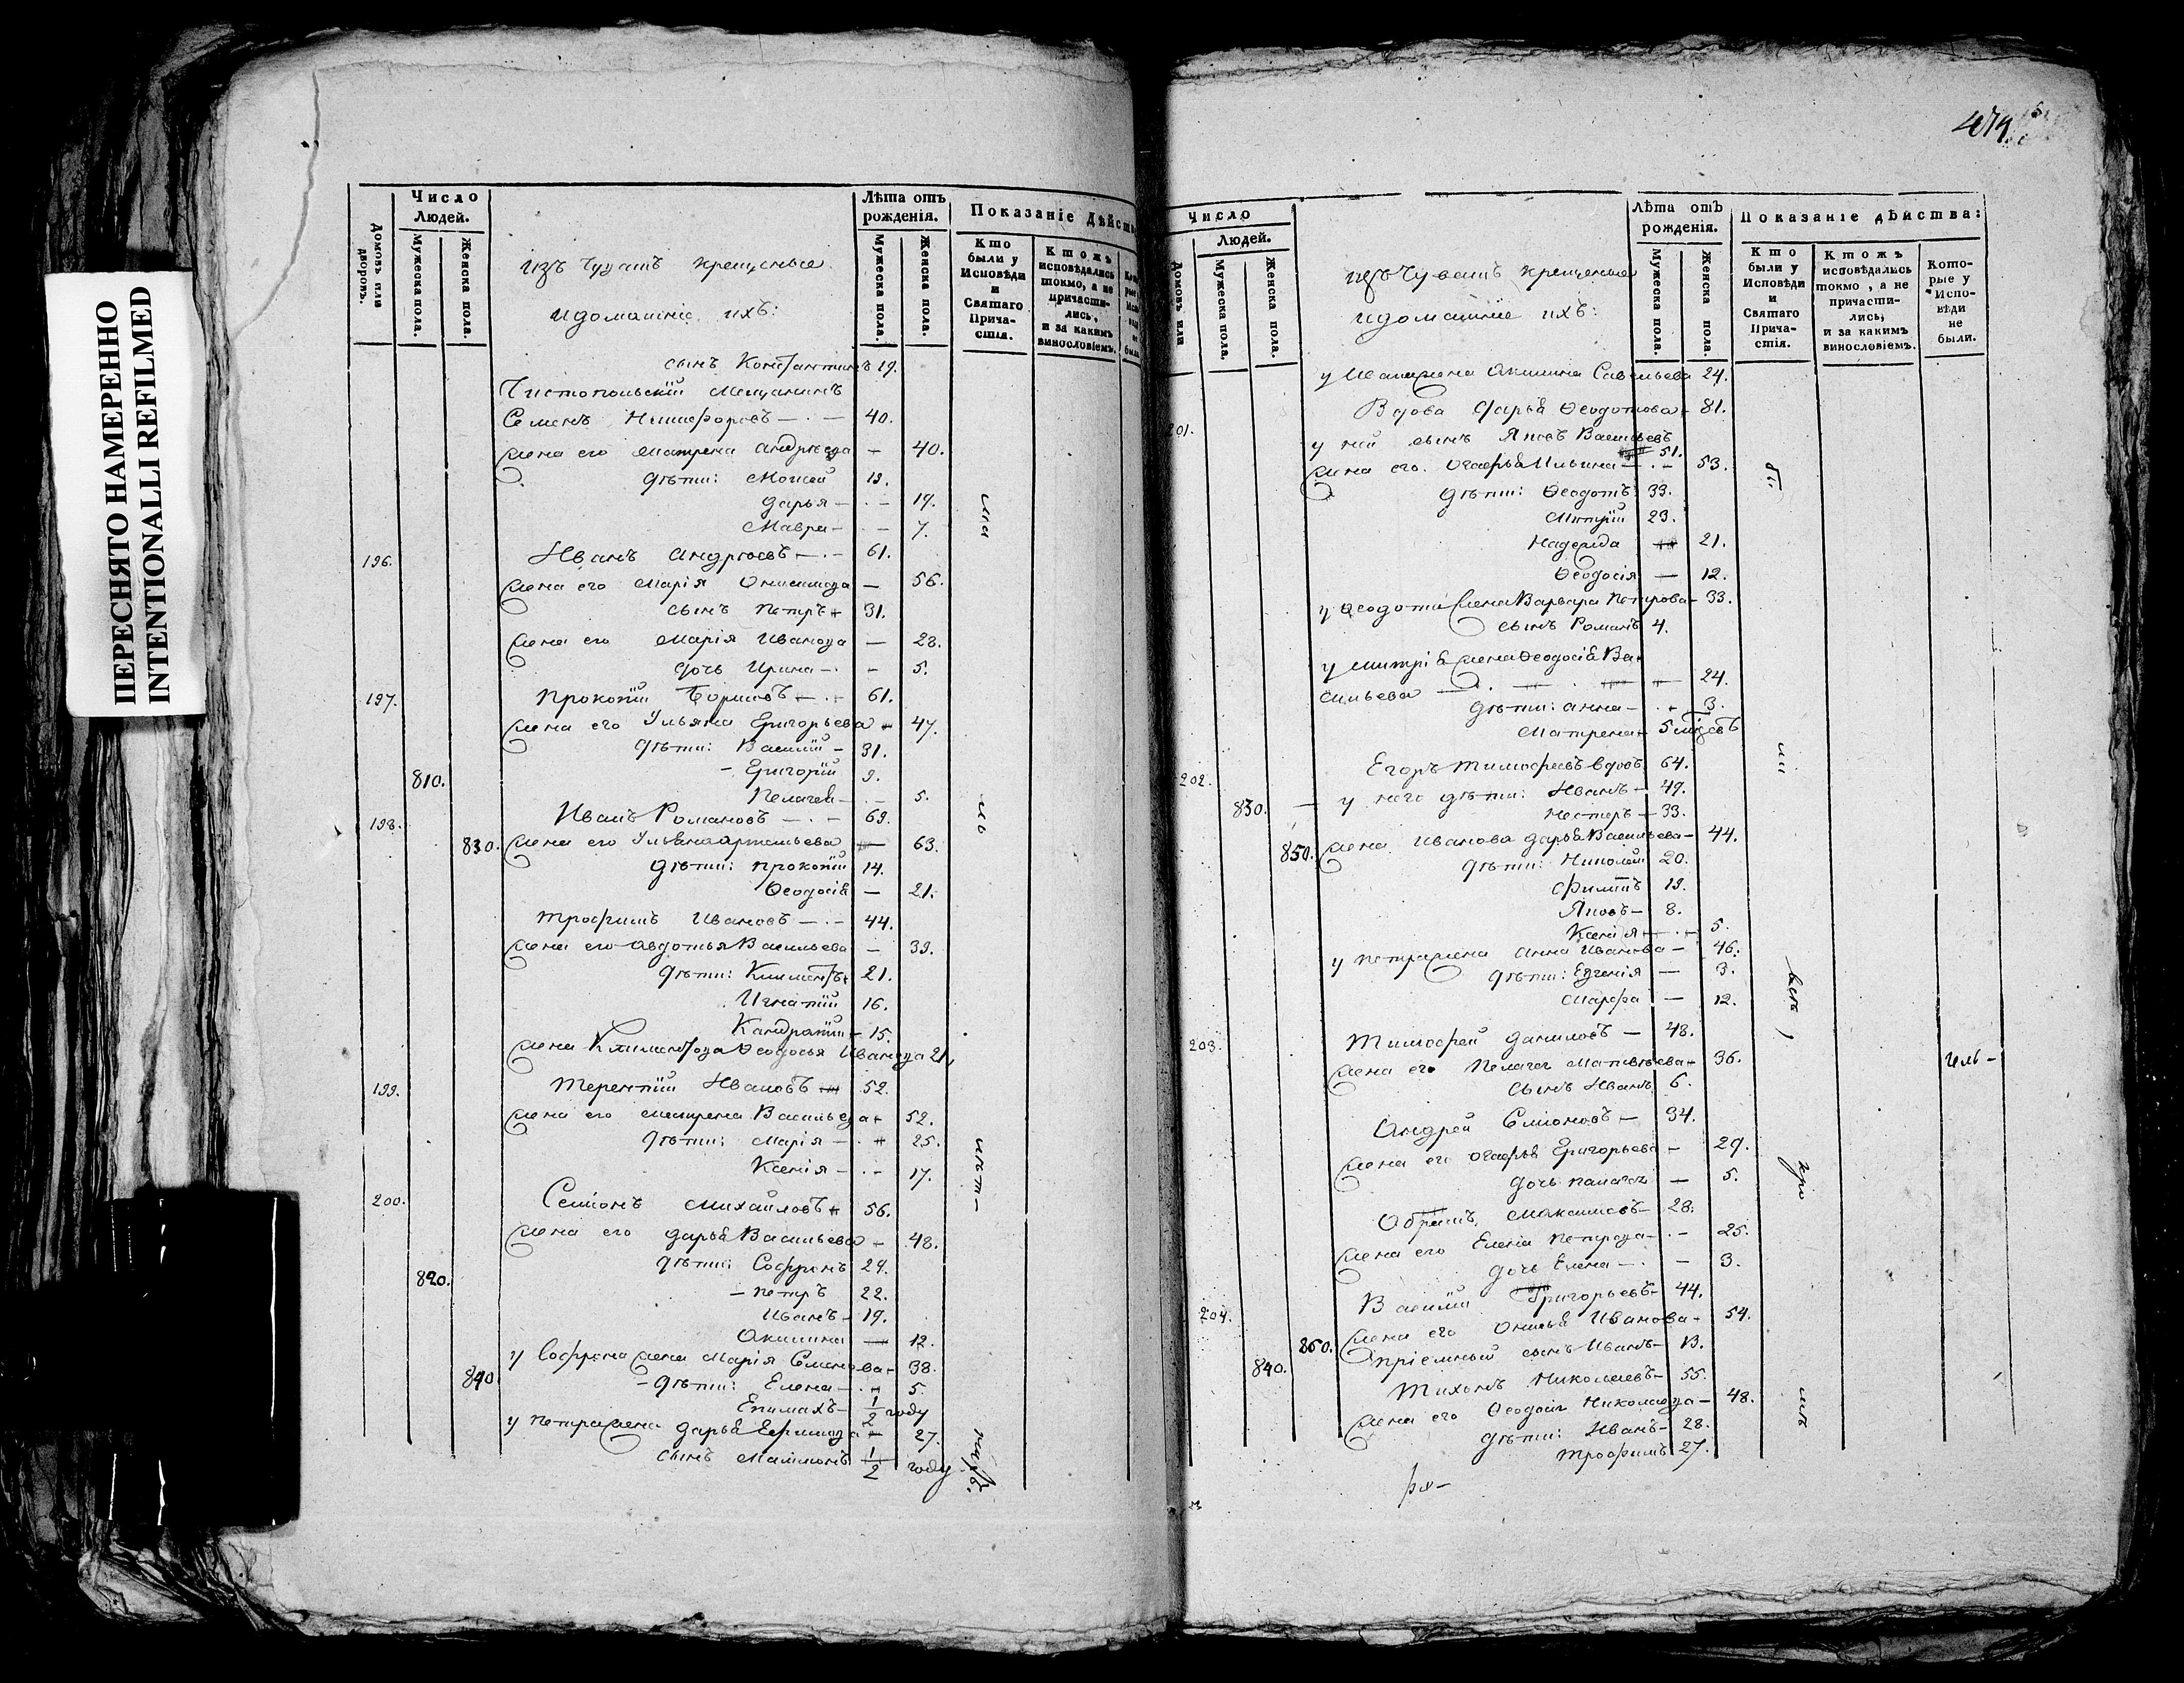 ПЕРЕСНЯТО НАМЕРЕННО
INTENTIONALLI REFILMED
Домовъ или дворовъ.
Число Людей.
Мужеска пола.
Женска пола.
изъ Чувашъ крещеные
и домашние ихъ:
Лѣта отъ рожденія.
Мужеска пола.
Женска пола.
Показаніе Дѣйств
Кто были у Исповѣди и Святаго Прича-стія.
Ктожъ исповѣдались токмо, а не причасти-лись, и за какимъ винословіемъ.
сынъ Константинъ 19.
Чистопольский Мещанинъ
Семенъ Никифоровъ — 40.
Жена его Матрена Андреева — 40.
дѣти: Моисей 13.
Дарья — 19.
Мавра — 7.
196. Иванъ Андреевъ — 61.
Жена его Марія Онисимова — 56.
сынъ Петръ 31.
Жена его Марія Иванова — 28.
дочь Ирина — 5.
197. Прокопій Борисовъ — 61.
Жена его Ульяна Григорьева 47.
дѣти: Василій — 31.
810. Григорій 9.
Пелагея — 5.
198. Иванъ Романовъ — 69.
830. Жена его Ульяна Артемьева — 63.
дѣти: Прокопій 14.
Ѳеодосія — 21.
Трофимъ Ивановъ — 44.
Жена его Авдотья Васильева — 39.
дѣти: Климентъ 21.
Игнатій 16.
Кандратій — 15.
Жена Климентова Ѳеодосья Иванова 21.
199. Терентій Ивановъ 52.
Жена его Матрена Васильева 52.
дѣти: Марія — 25.
Ксенія — 17.
200. Семіонъ Михайловъ 56.
Жена его Дарья Васильева — 48.
дѣти: Софронъ 29.
820. — Петръ 22.
Иванъ — 19.
Акилина — 12.
у Софрона жена Марія Семенова 38.
840. — дѣти: Елена — 5.
Епимахъ — 1/2 году
у Петра жена Дарья Ефимова — 27.
сынъ 1/2 году
474.
Число
Людей.
Домовъ или
Мужеска пола.
Женска пола.
изъ Чувашъ крещеные
и домашніе ихъ:
Лѣта отъ рожденія.
Мужеска пола.
Женска пола.
Показаніе дѣйства:
Кто были у Исповѣди и Святаго Прича-стія.
Ктожъ исповѣдались токмо, а не причасти-лись, и за какимъ винословіемъ.
Кото-рые у Испо-вѣди не были.
у Ивана жена Акилина Савельева 24.
Вдова Дарья Ѳеодотова 81.
201. у ней сынъ Яковъ Васильевъ 51.
Жена его Ильина — 53.
дѣти: Ѳеодотъ 33.
Митрій 23.
Надежда 21.
Ѳеодосія — 12.
у Ѳеодота жена Варвара Петрова 33.
сынъ Романъ 4.
у Митрія жена Ѳеодосія Ва-
сильева — 24.
дѣти: Анна — 3.
Матрена 5 мцовъ
202. Егоръ Тимофеевъ вдовъ 64.
830. у него дѣти: Иванъ — 49.
Нестеръ — 33.
850. Жена Иванова Дарья Васильева — 44.
дѣти: Николай 20.
Филипъ 19.
Яковъ — 8.
Ксенія — 5.
у Петра жена Анна Иванова — 46.
дѣти: Евгенія — 3.
Марфа — 12.
203. Тимофей Даниловъ — 48.
Жена его Пелагея Матвѣева 36.
сынъ Иванъ 6.
Андрей Семіоновъ — 34.
Жена его Григорьева — 29.
дочь Палагея — 5.
Максимовъ — 28.
Жена его Елена Петрова — 25.
дочь Елена — 3.
204. Василій Григорьевъ — 44.
860. Жена его Иванова — 54.
840. пріемный сынъ Иванъ — 13.
Тихонъ Николаевъ — 55.
Жена его Николаева — 48.
дѣти: Иванъ — 28.
Трофимъ 27.